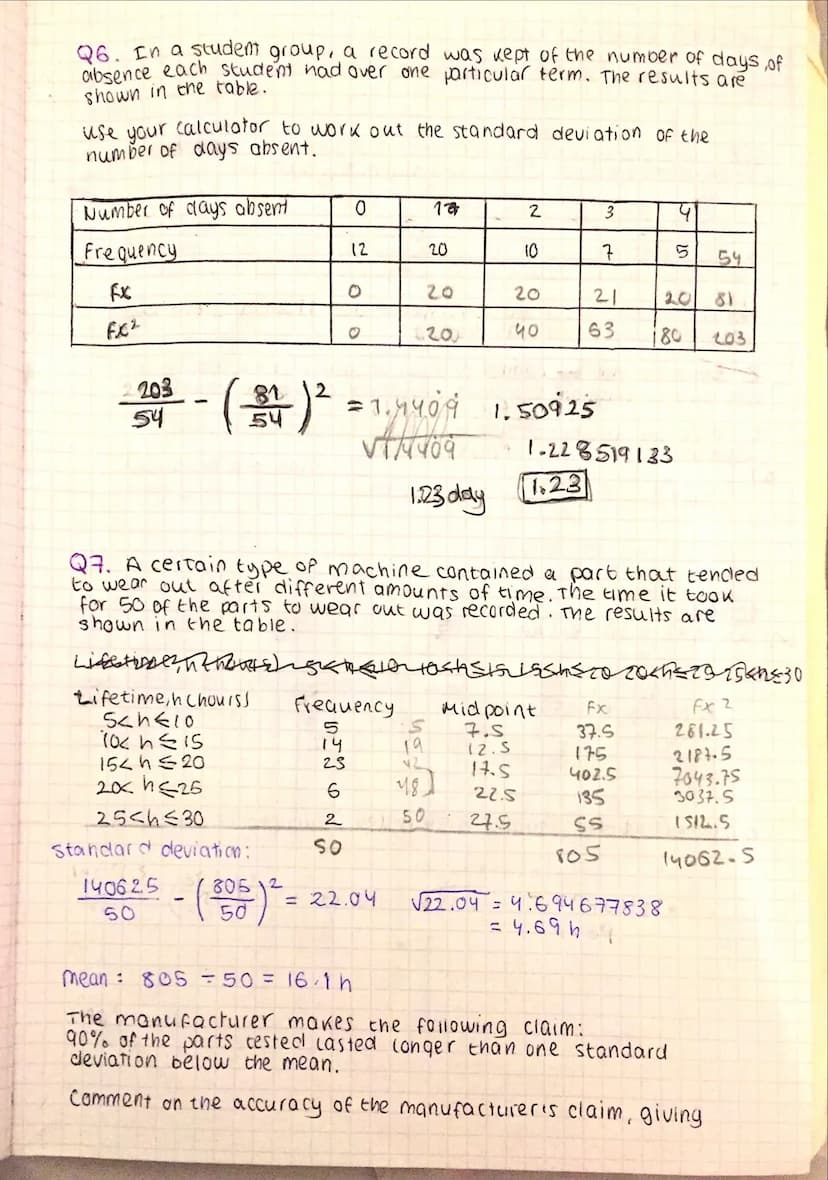 Q6. In a student group, a record was kept of the number of days of
absence each student had over one particular term. The results are
shown in the table.
use your calculator to work out the standard deviation of the
number of days absent.
Number of days absent 0 1 2 3 4
Frequency 12 20 10 7 5 54
fx 0 20 20 21 20 81
fx² 0 20 40 63 80 203
203/54 - (81/54)² = 1.4409 1.50925
√1.4409 1.228519133
1.23 day 1.23
Q7. A certain type of machine contained a part that tended
to wear out after different amounts of time. The time it took
for 50 of the parts to wear out was recorded. The results are
shown in the table.
Lifetime, h (hours) Frequency Midpoint Fx Fx²
5<h≤10 5 5 7.5 37.5 281.25
10<h≤15 14 19 12.5 175 2187.5
15<h≤20 23 42 17.5 402.5 7043.75
20<h≤25 6 48 22.5 135 3037.5
25<h≤30 2 50 27.5 55 1512.5
Standard deviation: 50 805 14062.5
140625/50 - (805/50)² = 22.04 √22.04 = 4.694677838
= 4.69 h
mean: 805 ÷ 50 = 16.1 h
The manufacturer makes the following claim:
90% of the parts tested lasted longer than one standard
deviation below the mean.
Comment on the accuracy of the manufacturer's claim, giving